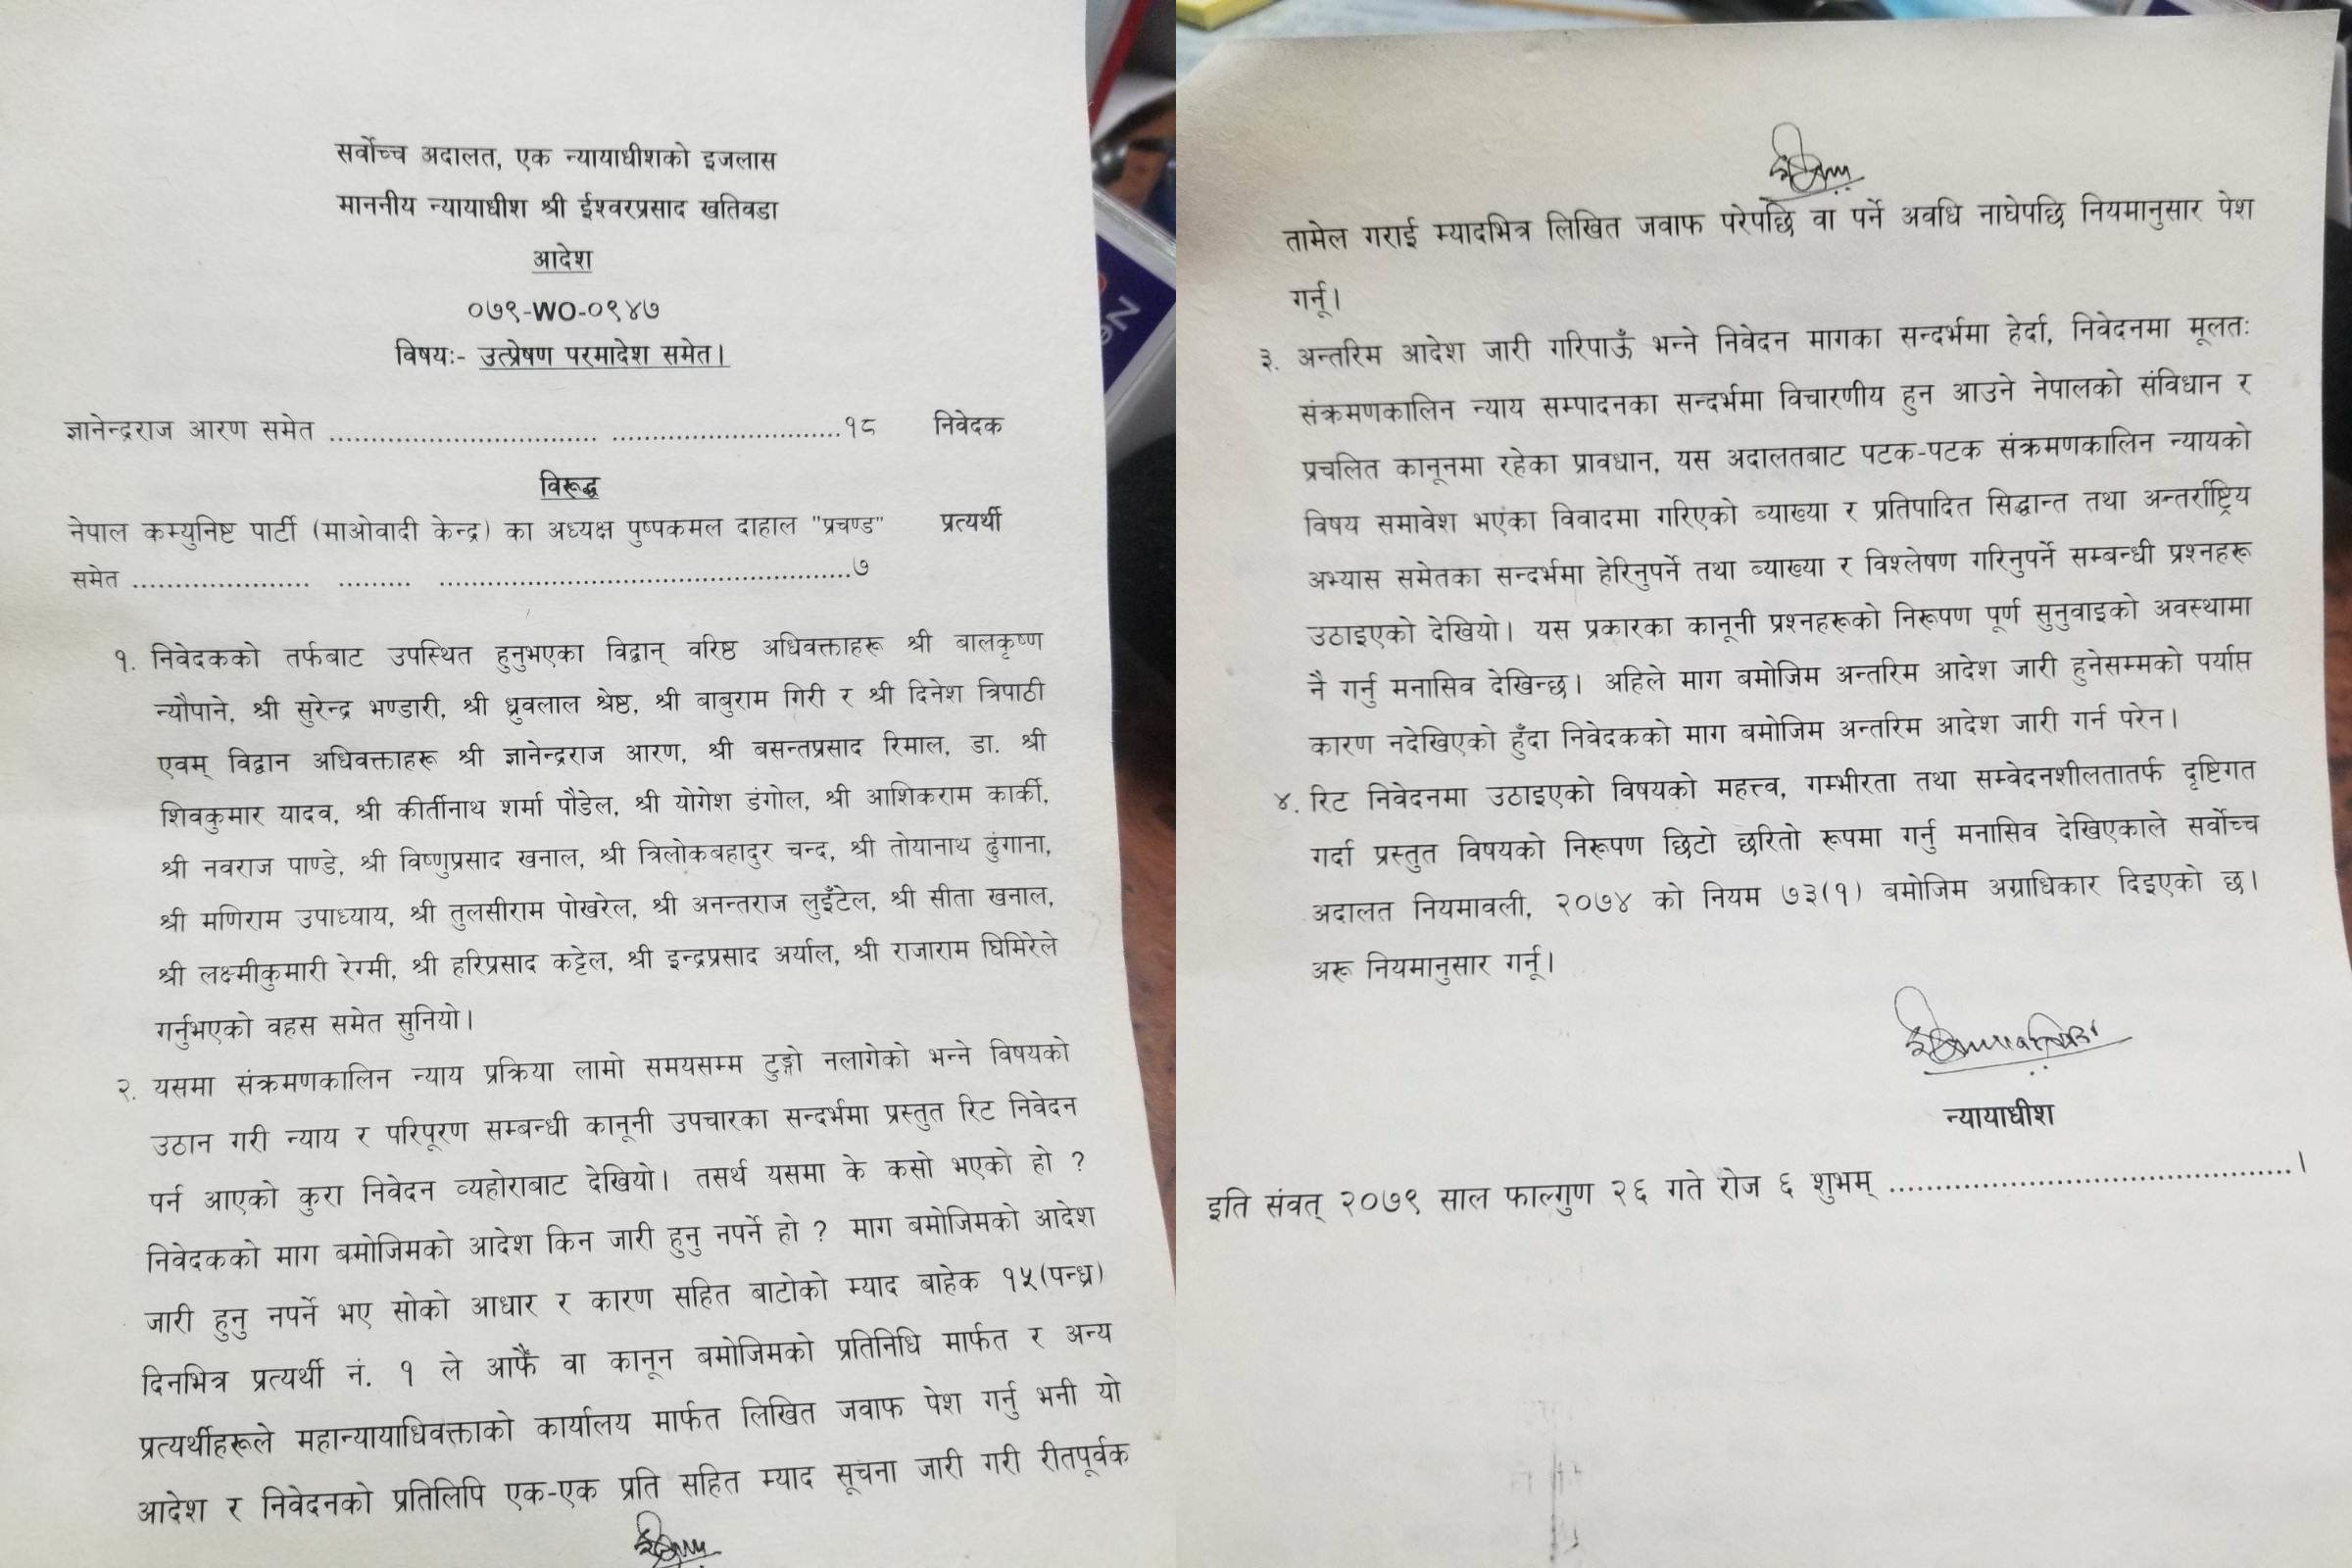 सर्वोच्च अदालत, एक न्यायाधीशको इजलास
माननीय न्यायाधीश श्री ईश्वरप्रसाद खतिवडा
आदेश
०७९-WO-०९४७
विषयः- उत्प्रेषण परमादेश समेत।
ज्ञानेन्द्रराज आरण समेत ................................ ............................१८ निवेदक
विरूद्ध
नेपाल कम्युनिष्ट पार्टी (माओवादी केन्द्र) का अध्यक्ष पुष्पकमल दाहाल "प्रचण्ड" प्रत्यर्थी
समेत ..................... ......... .................................................७
१. निवेदकको तर्फबाट उपस्थित हुनुभएका विद्वान् वरिष्ठ अधिवक्ताहरू श्री बालकृष्ण
न्यौपाने, श्री सुरेन्द्र भण्डारी, श्री ध्रुवलाल श्रेष्ठ, श्री बाबुराम गिरी र श्री दिनेश त्रिपाठी
एवम् विद्वान अधिवक्ताहरू श्री ज्ञानेन्द्रराज आरण, श्री बसन्तप्रसाद रिमाल, डा. श्री
शिवकुमार यादव, श्री कीर्तीनाथ शर्मा पौडेल, श्री योगेश डंगोल, श्री आशिकराम कार्की,
श्री नवराज पाण्डे, श्री विष्णुप्रसाद खनाल, श्री त्रिलोकबहादुर चन्द, श्री तोयानाथ ढुंगाना,
श्री मणिराम उपाध्याय, श्री तुलसीराम पोखरेल, श्री अनन्तराज लुइँटेल, श्री सीता खनाल,
श्री लक्ष्मीकुमारी रेग्मी, श्री हरिप्रसाद कट्टेल, श्री इन्द्रप्रसाद अर्याल, श्री राजाराम घिमिरेले
गर्नुभएको वहस समेत सुनियो।
२. यसमा संक्रमणकालिन न्याय प्रक्रिया लामो समयसम्म टुङ्गो नलागेको भन्ने विषयको
उठान गरी न्याय र परिपूरण सम्बन्धी कानूनी उपचारका सन्दर्भमा प्रस्तुत रिट निवेदन
पर्न आएको कुरा निवेदन व्यहोराबाट देखियो। तसर्थ यसमा के कसो भएको हो ?
निवेदकको माग बमोजिमको आदेश किन जारी हुनु नपर्ने हो ? माग बमोजिमको आदेश
जारी हुनु नपर्ने भए सोको आधार र कारण सहित बाटोको म्याद बाहेक १५(पन्ध्र)
दिनभित्र प्रत्यर्थी नं. १ ले आफैं वा कानून बमोजिमको प्रतिनिधि मार्फत र अन्य
प्रत्यर्थीहरूले महान्यायाधिवक्ताको कार्यालय मार्फत लिखित जवाफ पेश गर्नु भनी यो
आदेश र निवेदनको प्रतिलिपि एक-एक प्रति सहित म्याद सूचना जारी गरी रीतपूर्वक
तामेल गराई म्यादभित्र लिखित जवाफ परेपछि वा पर्ने अवधि नाघेपछि नियमानुसार पेश
गर्नू।
३. अन्तरिम आदेश जारी गरिपाऊँ भन्ने निवेदन मागका सन्दर्भमा हेर्दा, निवेदनमा मूलतः
संक्रमणकालिन न्याय सम्पादनका सन्दर्भमा विचारणीय हुन आउने नेपालको संविधान र
प्रचलित कानूनमा रहेका प्रावधान, यस अदालतबाट पटक-पटक संक्रमणकालिन न्यायको
विषय समावेश भएका विवादमा गरिएको व्याख्या र प्रतिपादित सिद्धान्त तथा अन्तर्राष्ट्रिय
अभ्यास समेतका सन्दर्भमा हेरिनुपर्ने तथा व्याख्या र विश्लेषण गरिनुपर्ने सम्बन्धी प्रश्नहरू
उठाइएको देखियो। यस प्रकारका कानूनी प्रश्नहरूको निरूपण पूर्ण सुनुवाइको अवस्थामा
नै गर्नु मनासिव देखिन्छ। अहिले माग बमोजिम अन्तरिम आदेश जारी हुनेसम्मको पर्याप्त
कारण नदेखिएको हुँदा निवेदकको माग बमोजिम अन्तरिम आदेश जारी गर्न परेन।
४. रिट निवेदनमा उठाइएको विषयको महत्त्व, गम्भीरता तथा सम्वेदनशीलतातर्फ दृष्टिगत
गर्दा प्रस्तुत विषयको निरूपण छिटो छरितो रूपमा गर्नु मनासिव देखिएकाले सर्वोच्च
अदालत नियमावली, २०७४ को नियम ७३(१) बमोजिम अग्राधिकार दिइएको छ।
अरू नियमानुसार गर्नू।
न्यायाधीश
इति संवत् २०७९ साल फाल्गुण २६ गते रोज ६ शुभम् ................................................।